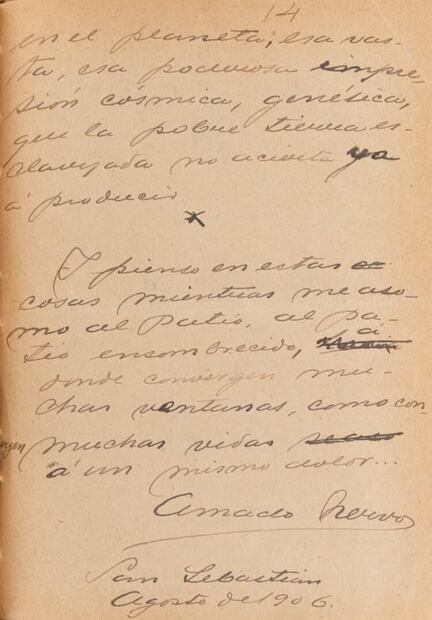 14
en el planeta; esa vas-
ta, esa poderosa impre-
sión cósmica, genésica,
que la pobre tierra es-
clavizada no acierta ya
á producir
x
Y pienso en estas
cosas mientras me aso-
mo al patio, al pa-
tio ensombrecido, á
donde convergen mu-
chas ventanas, como con-
vergen muchas vidas
á un mismo dolor...
Amado Nervo
San Sebastian
Agosto de 1906.